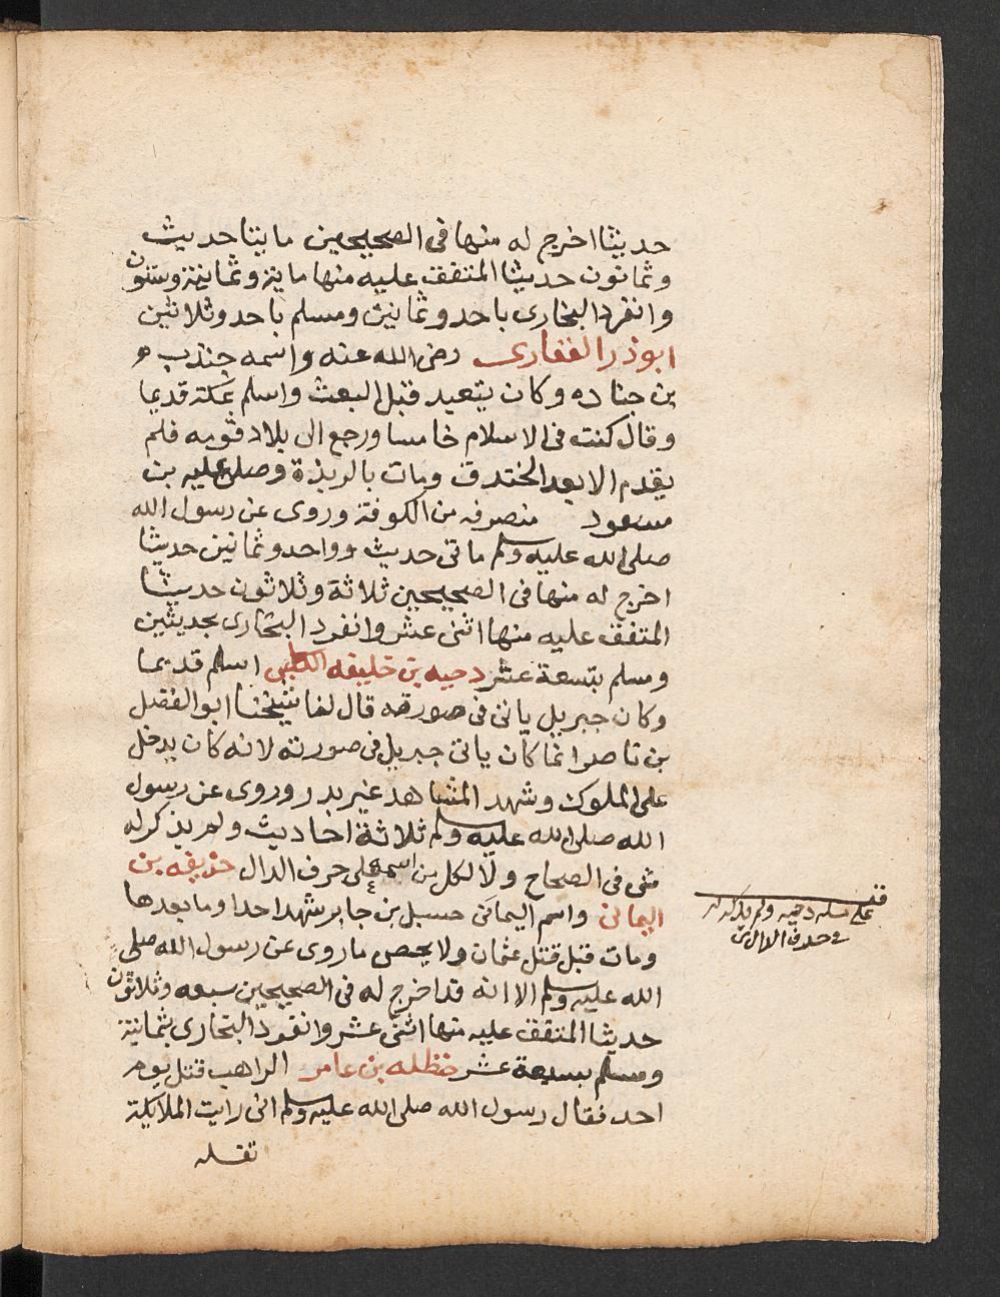 حديثا اخرج له منها فى الصحيحين مايتا حديث
وثمانون حديثا المتفق عليه منها ماية وثمانية وستون
وانفرد البخارى باحد وثمانين ومسلم باحد وثلاثين
ابوذر الغفارى رضى الله عنه واسمه جندب
بن جناده وكان يتعبد قبل البعث واسلم بمكة قديما
وقال كنت فى الاسلام خامسا ورجع الى بلاد قومه فلم
يقدم الا بعد الخندق ومات بالربذة وصلى عليه بن
مسعود منصرفه من الكوفة وروى عن رسول الله
صلى الله عليه وسلم ماتى حديث وواحد وثمانين حديثا
اخرج له منها فى الصحيحين ثلاثة وثلاثون حديثا
المتفق عليه منها اثنى عشر وانفرد البخارى بحديثين
ومسلم بتسعة عشر دحيه بن خليفه الكلبى اسلم قديما
وكان جبريل ياتى فى صورته قال لنا شيخنا ابوالفضل
بن ناصر انما كان ياتى جبريل فى صورته لانه كان يدخل
على الملوك وشهد المشاهد غير بدر وروى عن رسول
الله صلى الله عليه وسلم ثلاثة احاديث ولم يذكر له
شى فى الصحاح ولا لكل من اسمه على حرف الدال حذيفه بن
اليمانى واسم اليمانى حسيل بن جابر شهد احدا وما بعدها
ومات قبل قتل عثمان ولا يحص ماروى عن رسول الله صلى
الله عليه وسلم الا انه قد اخرج له فى الصحيحين سبعه وثلاثون
حديثا المتفق عليه منها اثنى عشر وانفرد البخارى بثمانية
ومسلم بسبعة عشر حنظله بن عامر الراهب قتل يوم
احد فقال رسول الله صلى الله عليه وسلم انى رايت الملايكة
تغسله
قف
على مسله دحيه ولم يذكر له
فى حرف الدال